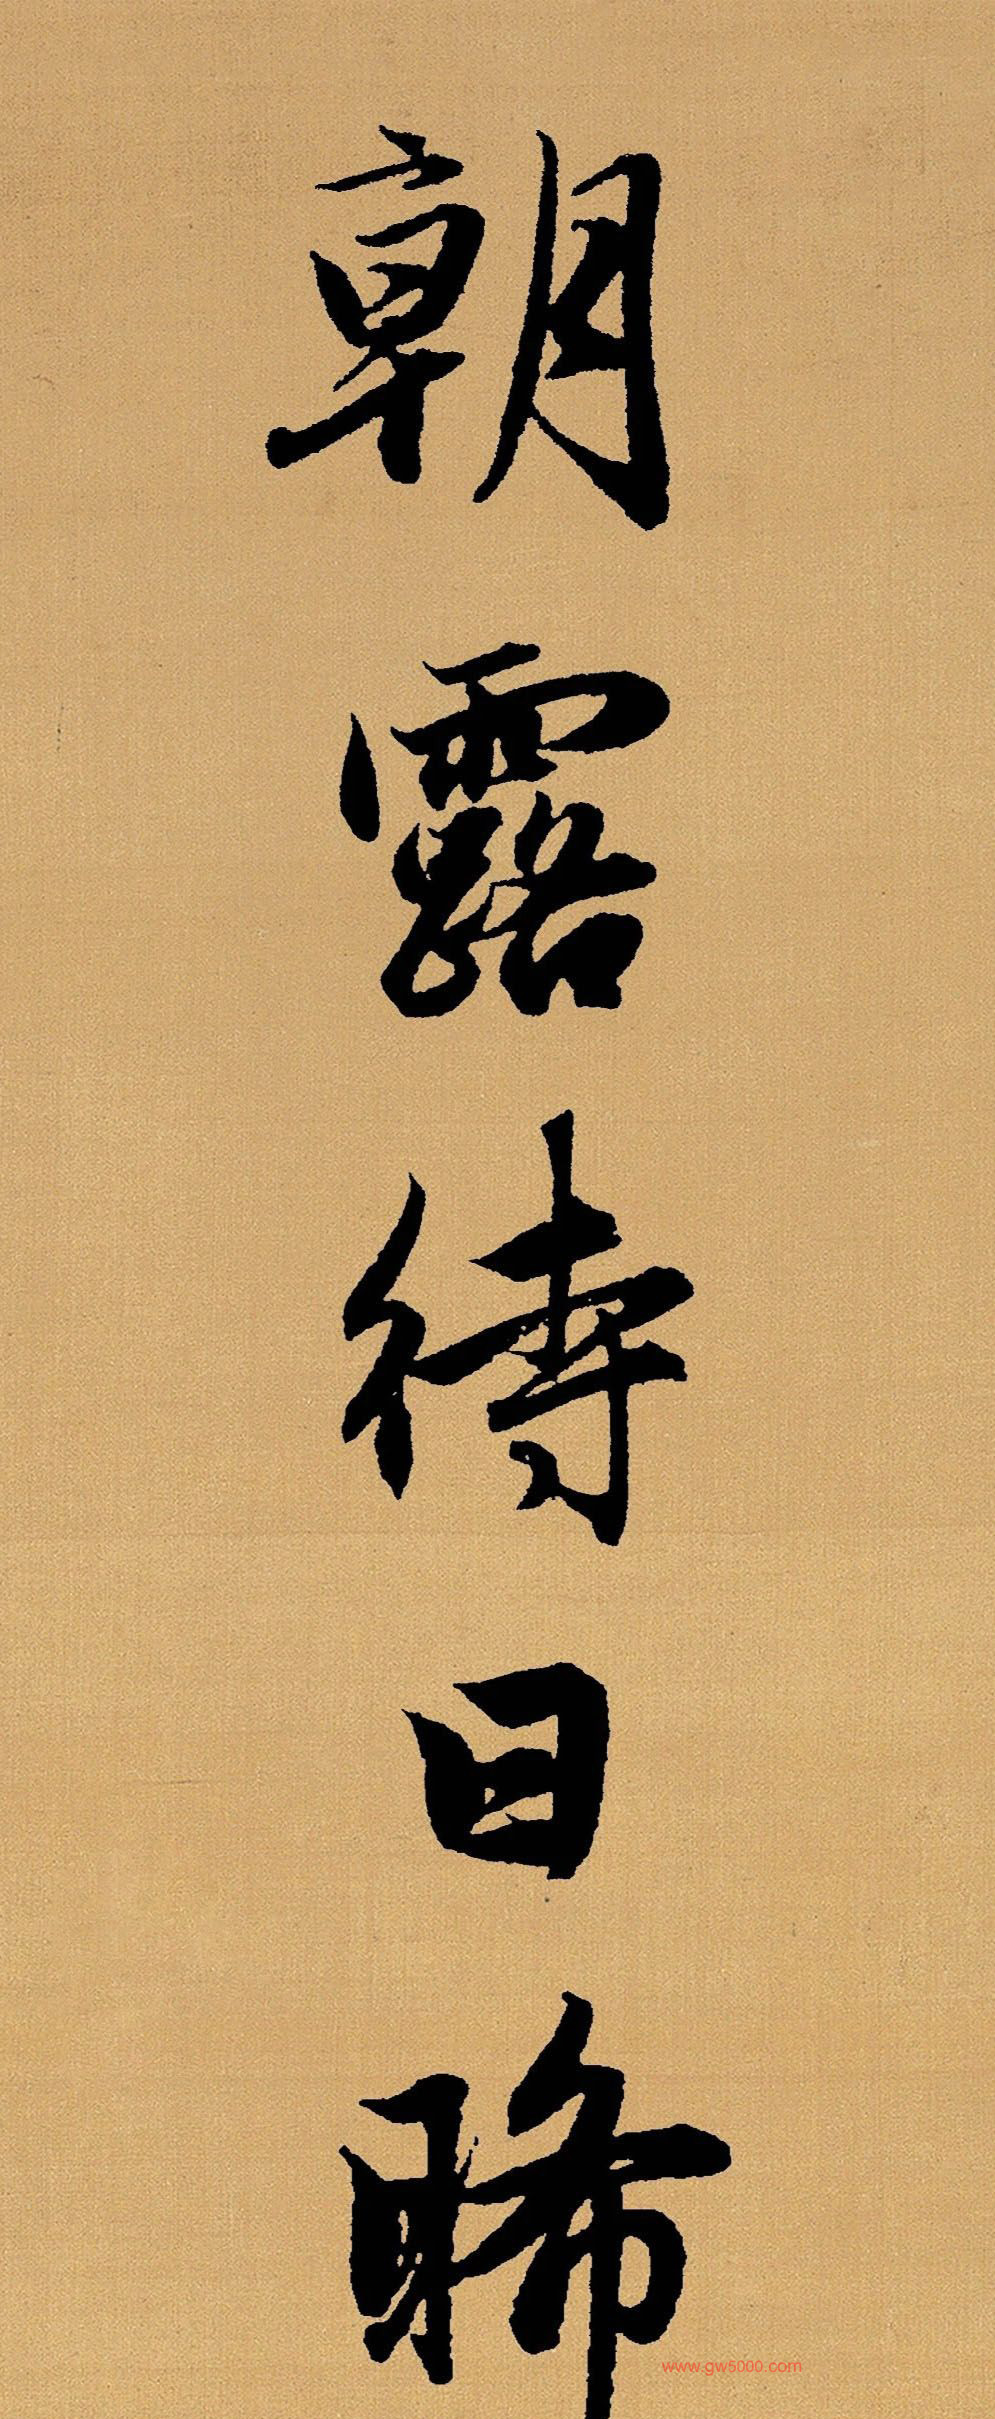 朝露待日晞
www.gw5000.com